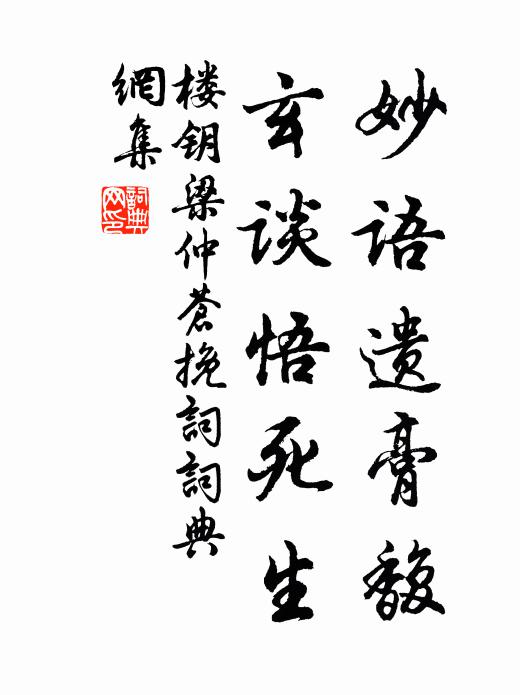 妙语遗膏馥
玄谈悟死生
楼钥梁仲蒼挽詞詞典
網集
詞典网印